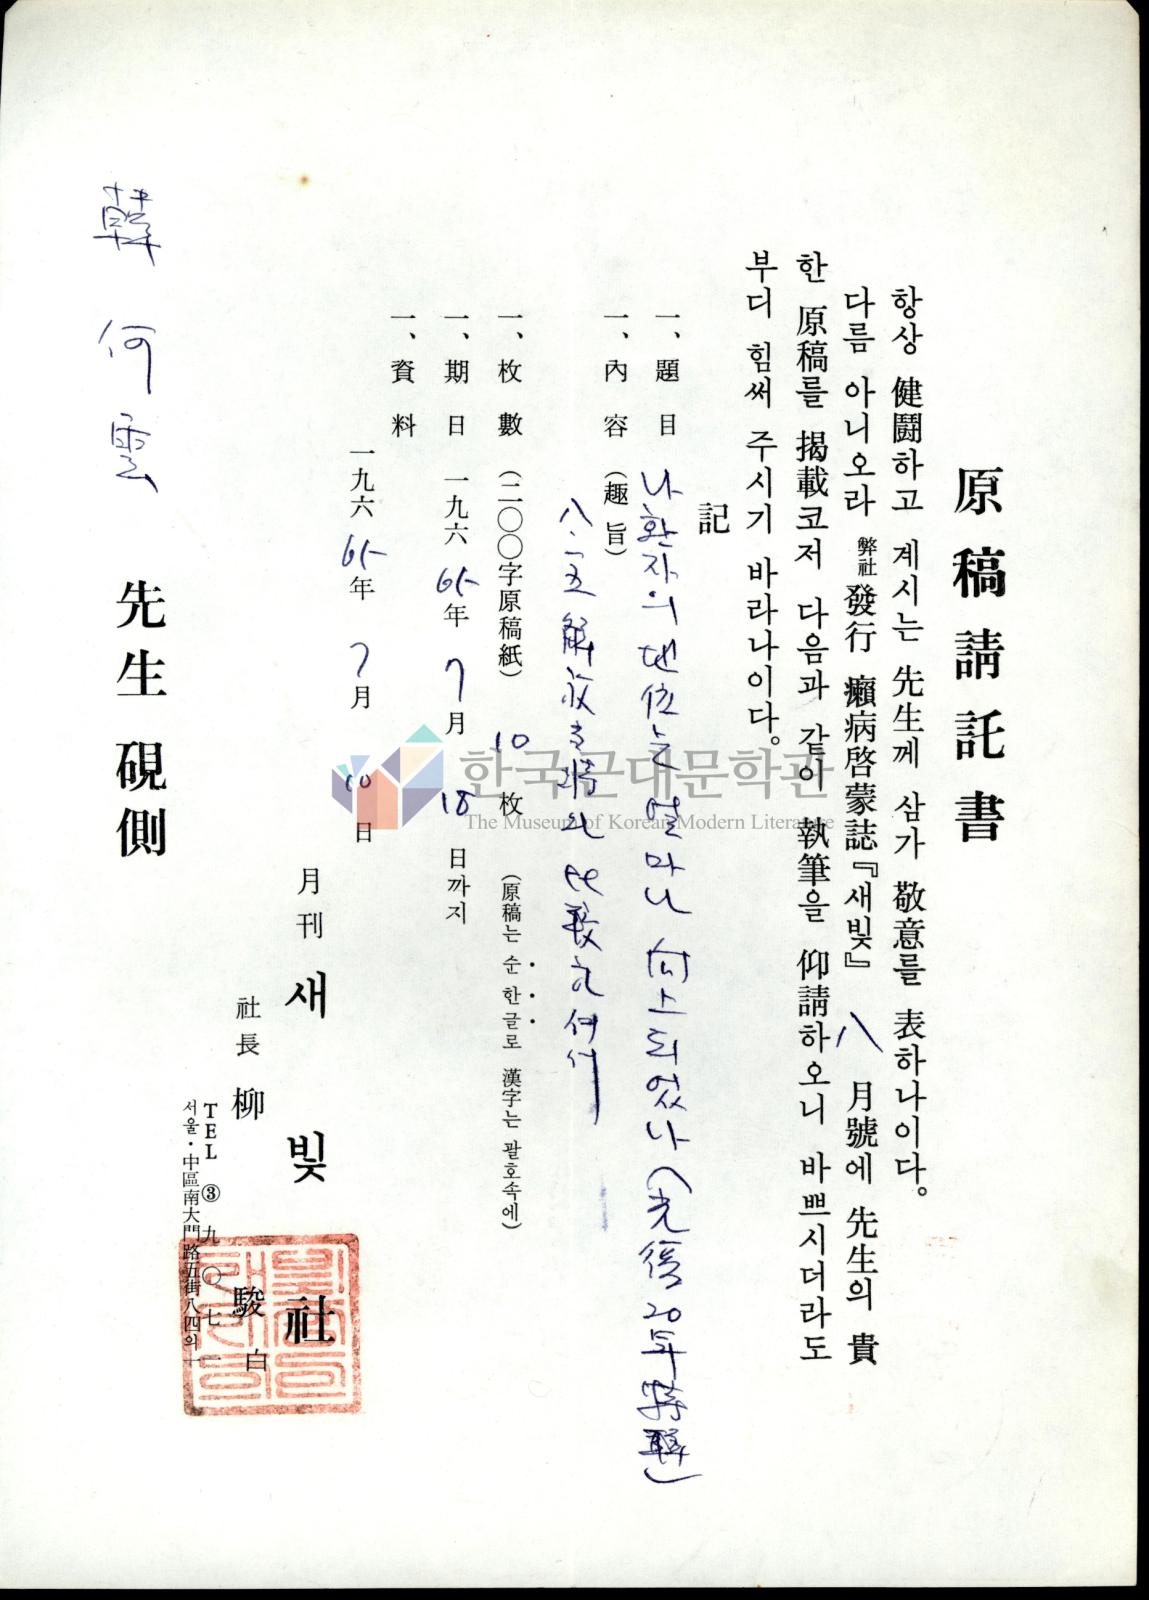 原稿請託書
항상 健鬪하고 계시는 先生께 삼가 敬意를 表하나이다。
다름 아니오라 弊社 發行 癩病啓蒙誌『새빛』 八 月號에 先生의 貴
한 原稿를 揭載코저 다음과 같이 執筆을 仰請하오니 바쁘시더라도
부디 힘써 주시기 바라나이다。
記
一、題目 나환자의 地位는 얼마나 向上되었나 (光復20年特輯)
一、內容(趣旨)
八·一五 解放 当時와 比較하여서
一、枚數 (二〇〇字原稿紙) 10 枚 (原稿는 순 한글로 漢字는 괄호속에)
一、期日 一九六 65年 7月 18 日까지
一、資料
一九六 65年 7月 10 日
月刊 새빛社
社長 柳駿 白
TEL ③ 九〇七一
서울·中區南大門路五街八四의一
韓何雲 先生 硯側
한국근대문학관
The Museum of Korean Modern Literature